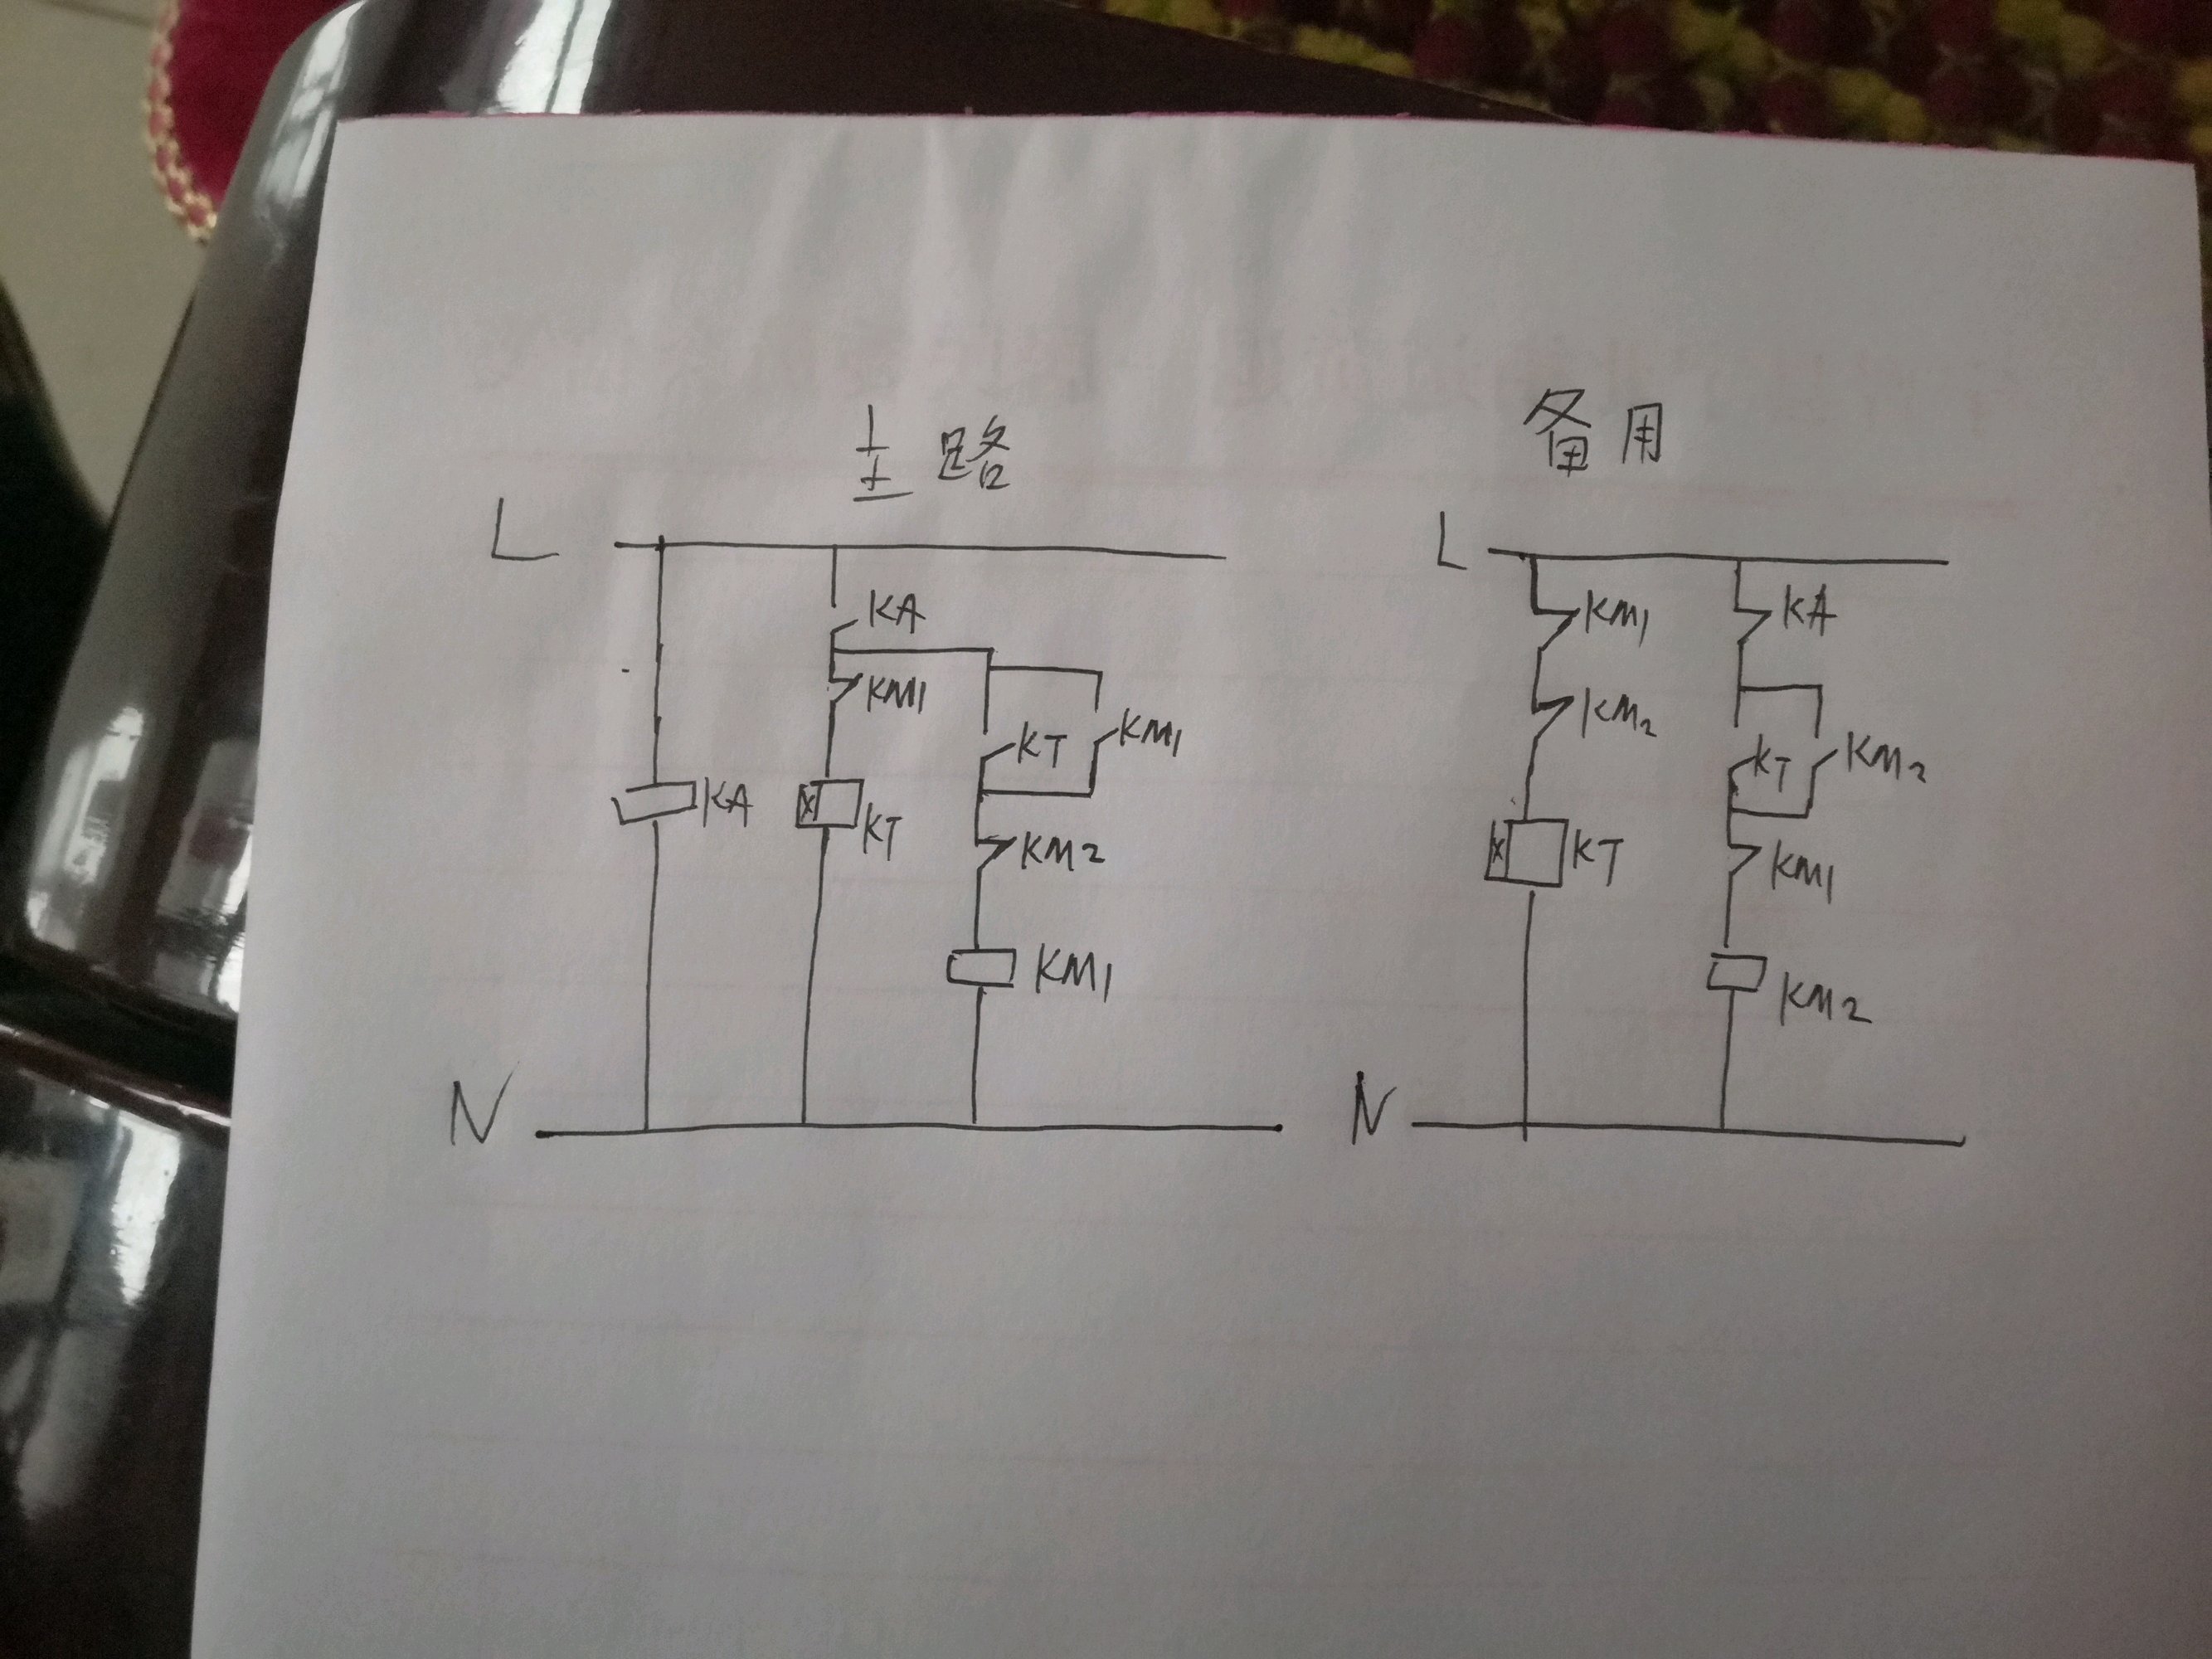 主路
L
KA
KM1
KT
KM1
KA
KT
KM2
KM1
N
备用
L
KM1
KA
KM2
KT
KM2
KT
KM1
KM2
N